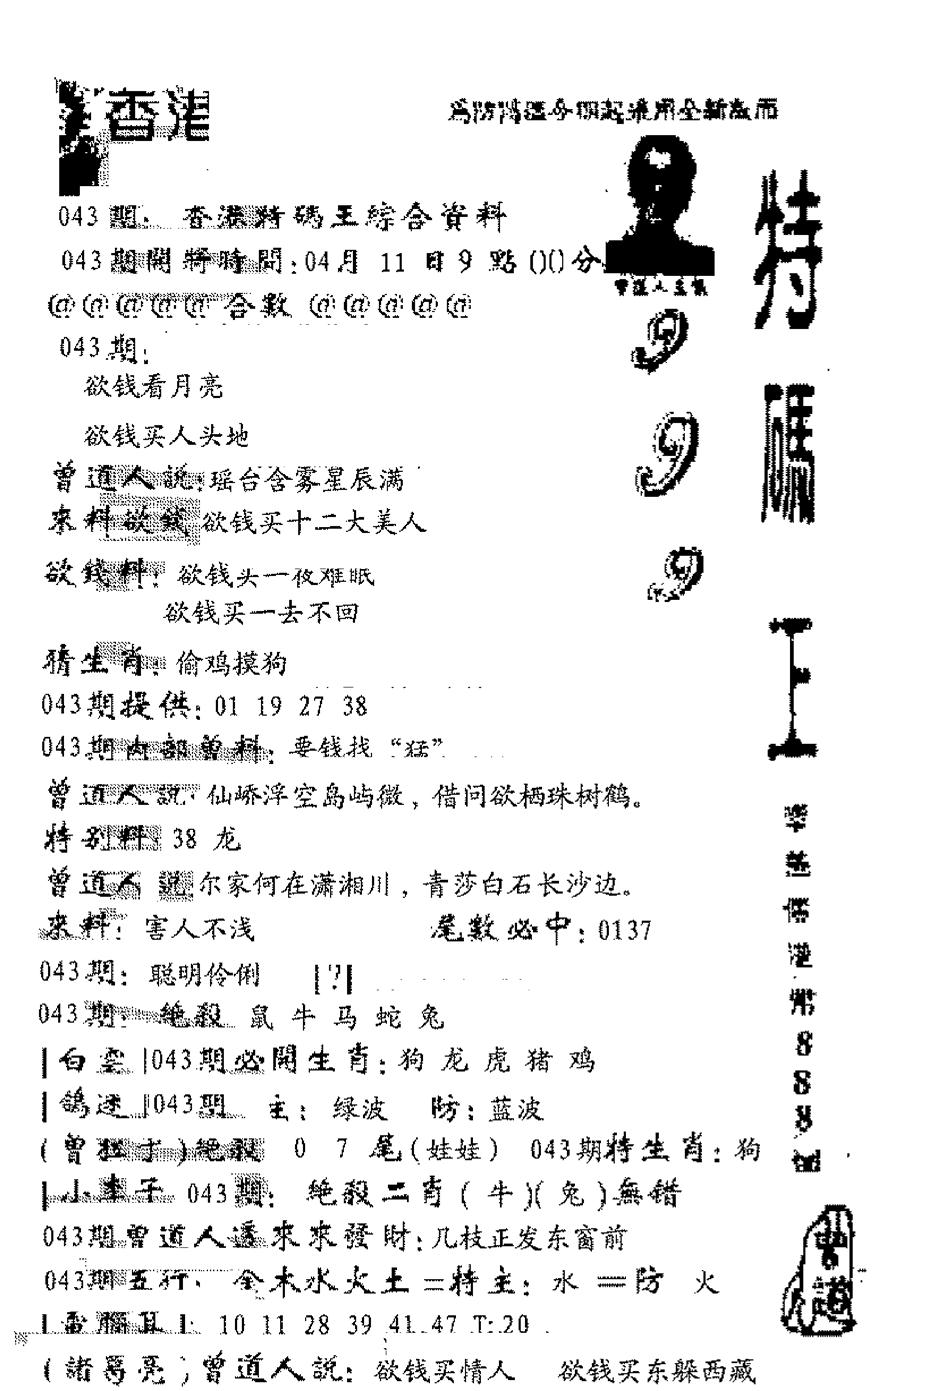 香港
為防濤區今期起採用全新版面
043期: 香港特碼王綜合資料
043期開將時間:04月 11 日 9 點()()分
曾道人主供
@@@@@合數 @@@@@
043期:
欲钱看月亮
欲钱买人头地
曾道人說:瑶台含雾星辰满
來料欲錢 欲钱买十二大美人
欲錢料: 欲钱买一夜难眠
欲钱买一去不回
猜生肖: 偷鸡摸狗
043期提供: 01 19 27 38
043期内部曾料: 要钱找 “猛”
曾道人說: 仙峤浮空岛屿微，借问欲栖珠树鹤。
特别料: 38 龙
曾道人 說 尔家何在潇湘川，青莎白石长沙边。
來料: 害人不浅 尾數必中: 0137
043期: 聪明伶俐 |?|
043期: 絶殺 鼠 牛 马 蛇 兔
|白雲|043期必開生肖: 狗 龙 虎 猪 鸡
|鴿迷|043期 主: 绿波 防: 蓝波
043期特生肖: 狗
絶殺 0 7 尾(娃娃)
043期: 絶殺二肖(牛)(兔)無錯
043期曾道人透來來發財: 几枝正发东窗前
043期五行: 金木水火土=特主: 水 =防 火
|電腦耳|: 10 11 28 39 41 47 T:20
(諸葛亮)曾道人說: 欲钱买情人 欲钱买东躲西藏
特碼王
9
9
9
港幣888
曾道